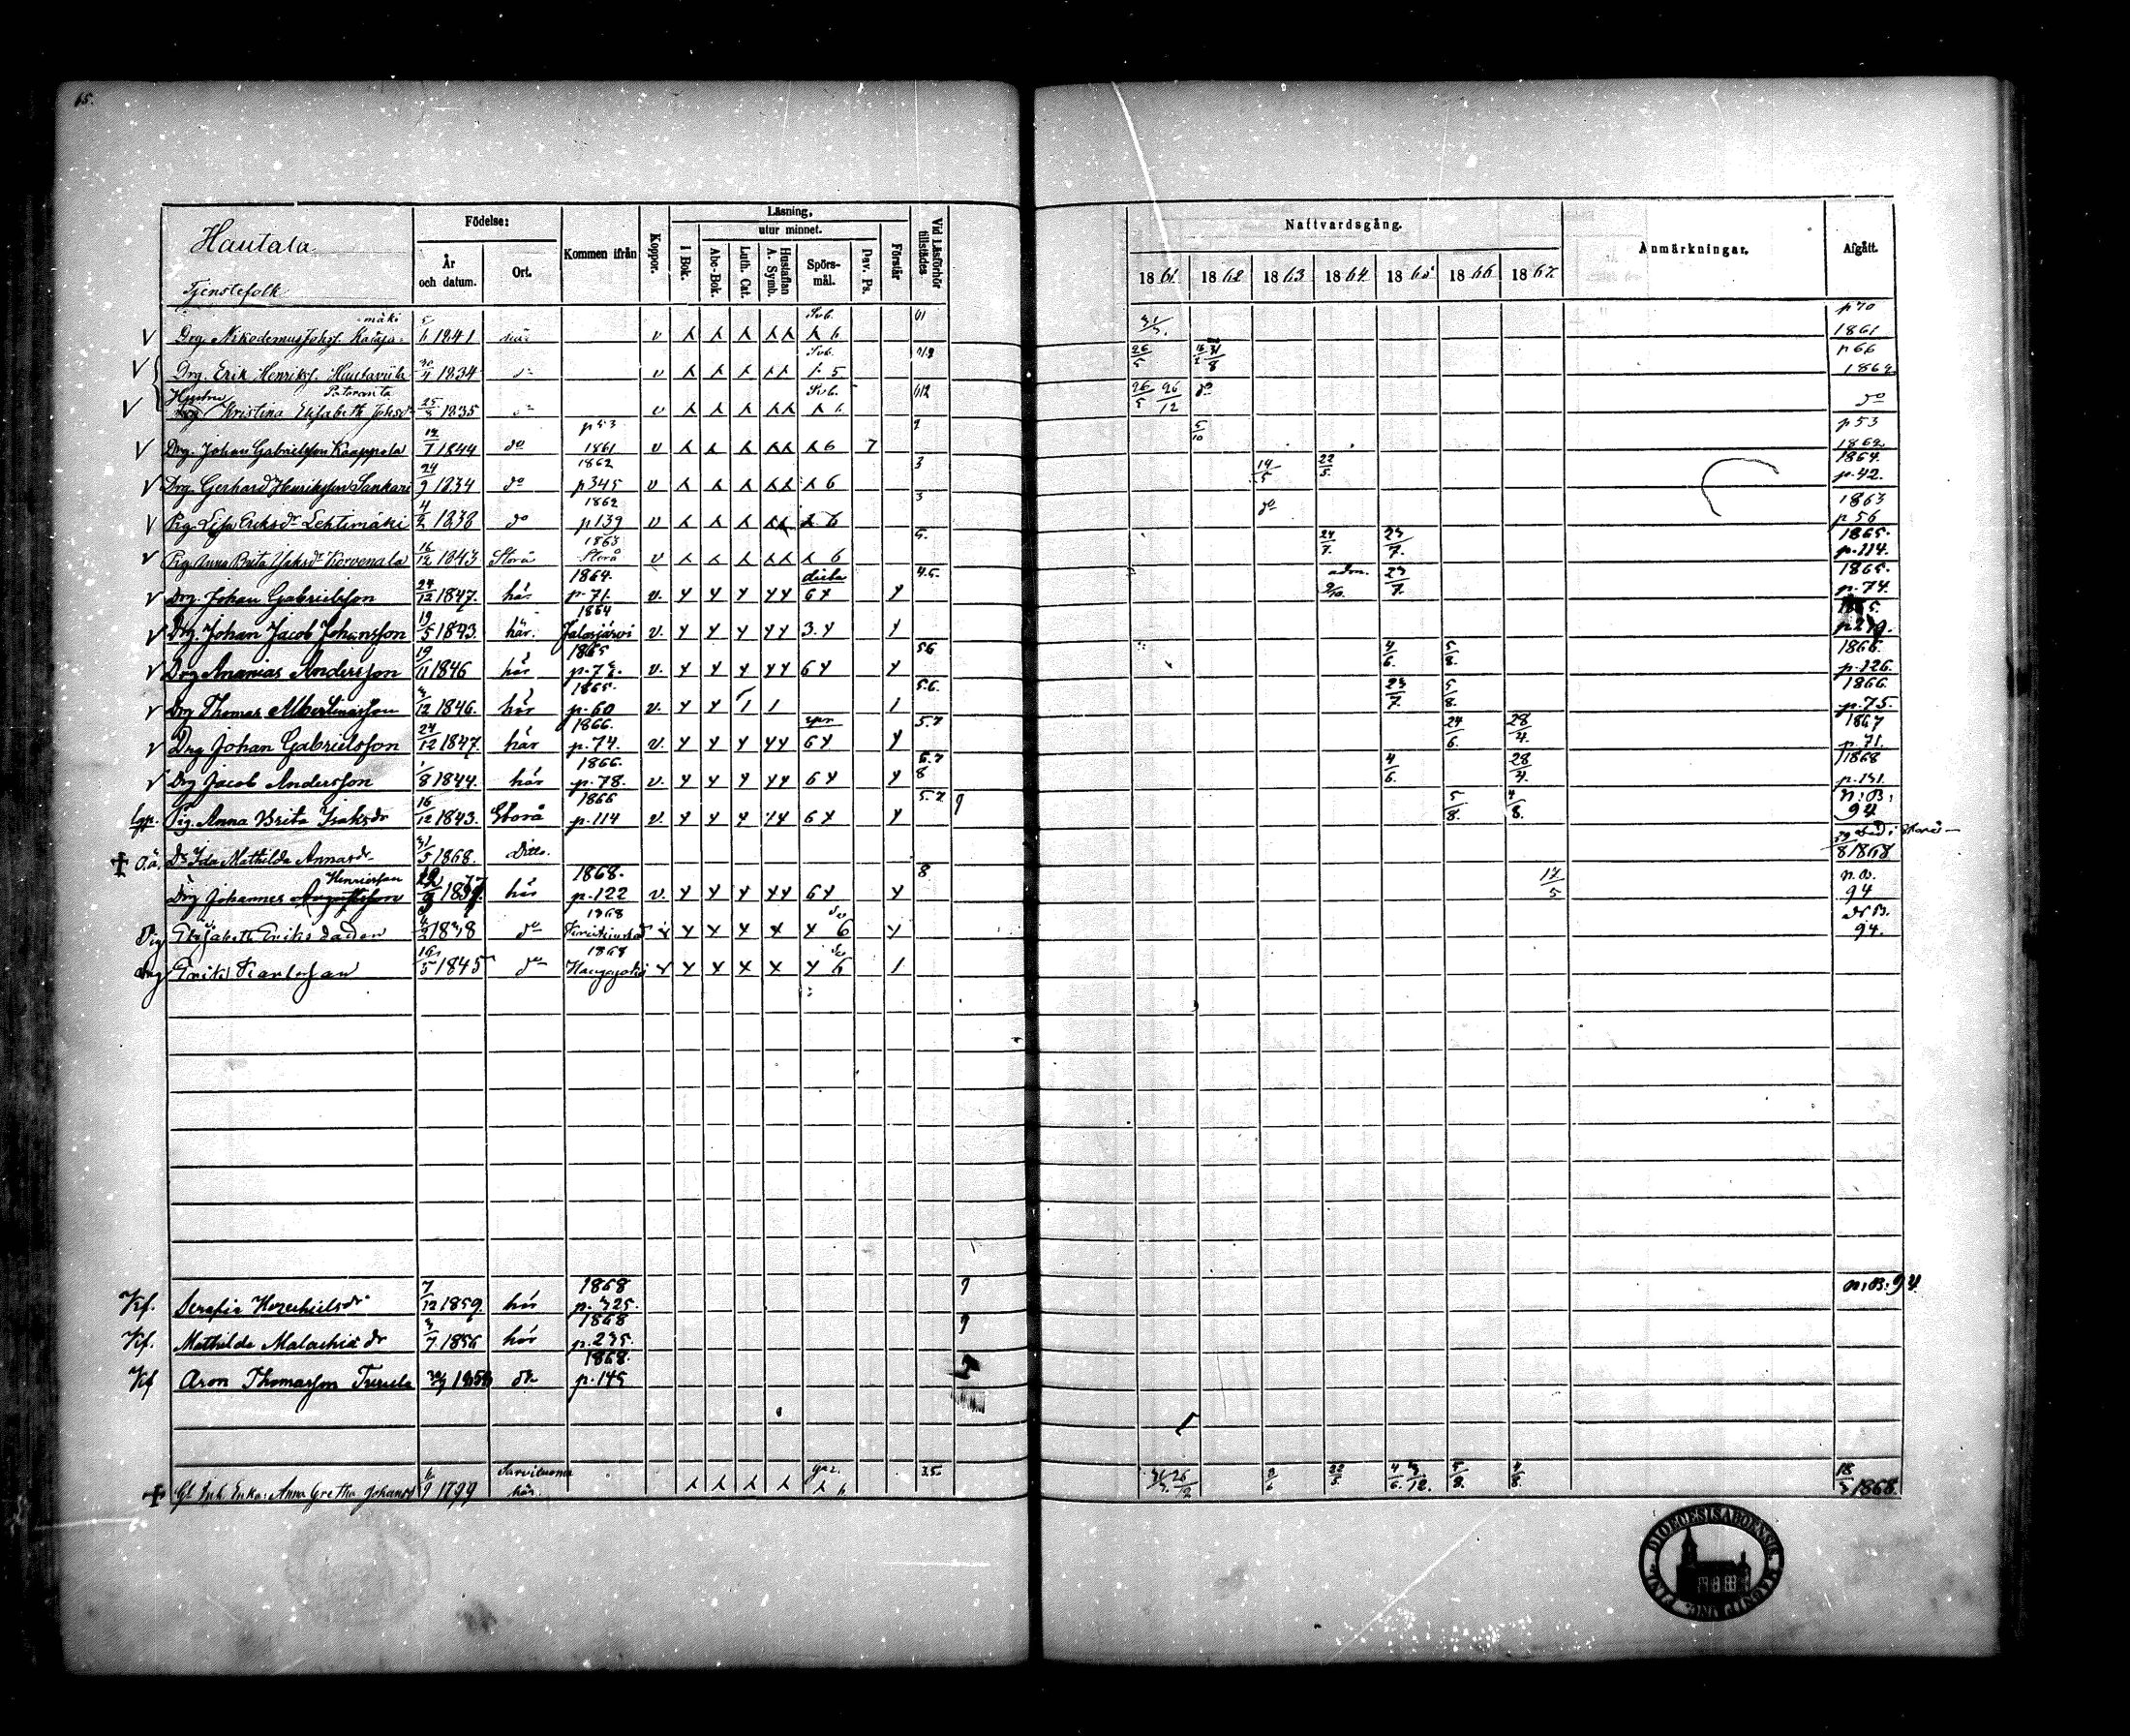 65.
Hautala
Tjenstefolk
Födelse:
År och datum.
Ort.
Kommen ifrån
Koppor.
Läsning,
utur minnet.
I Bok.
Abc-Bok.
Luth. Cat.
Hustaflan A. Symb.
Spörsmål.
Dav. Ps.
Förstår
Vid Läsförhör tillstädes
Nattvardsgång.
1861 1862 1863 1864 1865 1866 1867
Anmärkningar.
Afgått.
mäki Svb. 61 p 70
Drg. Nikodemus Johss. Kataja- 5/6 1841 v 6 1861
Svb. p 66
Drg. Erik Henrikss. 30/11 1834 do v 5 26/5 1862
Hustru Svb. 612
Kristina Elisabeth Johsdr 25/3 1835 do v 26/5 26/12 do do
p 53 2 p 53
Drg. Johan Gabrielsson Kaappola 1844 do 1861 v 6 7 5/10 1862
1862 3 1864.
Drg. Gerhard Henriksson Sankari 24/9 1834 do p 345 v 6 14/5 22/5. p. 42.
1862 3 1863
Pig. Lisa Eriksdr Lehtimäki 4/2 1838 do p 139 v 6 do p 56
1863 5. 1865.
Pig. Anna Brita Isaksdr Korvenala 16/12 1843 Storå Storå v 6 24/7. 23/7. p. 114.
1864. 4.5. adm. 1865.
Drg. Johan Gabrielsson 24/12 1847. här p. 71. v. 6 9/10. 23/7. p. 74.
1864
Drg. Johan Jacob Johansson 19/5 1843. här. Jalasjärvi v. 3.
1865 56 1866.
Drg Ananias Andersson 19/11 1846 här v. 6 4/6. 5/8. p. 126.
1865. 5.6. 1866.
Drg Thomas Albertinasson 3/12 1846. här p. 60 v. 23/7. 5/8. p. 75.
1866. 5.7 1867
Drg Johan Gabrielsson 24/12 1847. här p. 74. v. 6 24/6. 28/4. p. 71.
1866. 6.7 8 1868
Drg Jacob Andersson 1/8 1844. här p. 78. v. 6 4/6. 28/4. p. 131.
1866 5.7. 9 N: B:
Pig. Anna Brita Isaksdr 16/12 1843. Storå p. 114 v. 6 5/8. 4/8. 94
O.ä. Dr Ida Mathilda Annasdr 31/5 1868. Ditto. 8 1868
Henriksson 1868. 8 n.B.
Drg Johannes här p. 122 v. 6 17/5 94
1868 N. B.
Pig Elisabeth Eriksdotter do Kristinestad 6 94.
1868
Drg Erik Karlsson 5 1845 do 6
1868 9
Kf. Serafia Hezekielsdr 7/12 1859. här p. 325. n: B: 94.
1868 9
Kf. Mathilda Malachiä dr 3/7 1856 här p. 235.
1868.
Kf Aron Thomasson p. 145
Anna Gretha Johansdr 9 1799 här. 6 35. 2/6 22/5 5/8. 4/8. 18/3 1868.
DIOECESIS ABOENSIS. MAGNI PRINC. FINL.